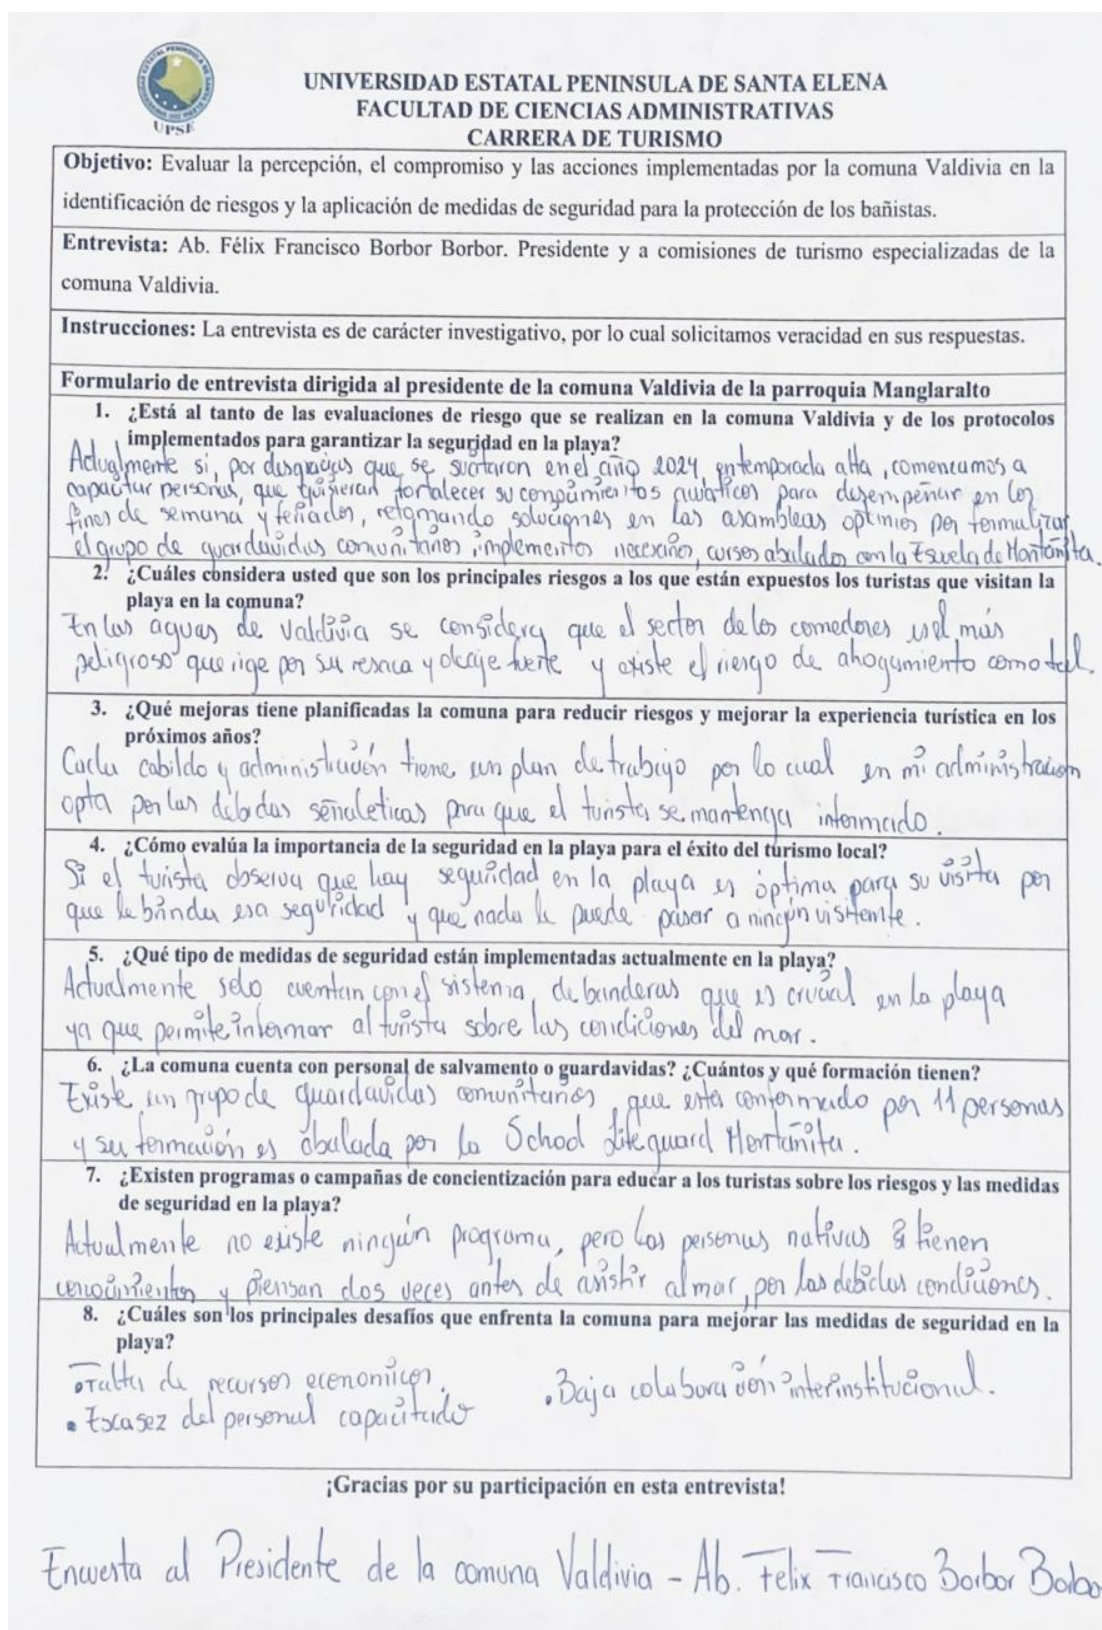 UPSE
UNIVERSIDAD ESTATAL PENINSULA DE SANTA ELENA
FACULTAD DE CIENCIAS ADMINISTRATIVAS
CARRERA DE TURISMO
Objetivo: Evaluar la percepción, el compromiso y las acciones implementadas por la comuna Valdivia en la
identificación de riesgos y la aplicación de medidas de seguridad para la protección de los bañistas.
Entrevista: Ab. Félix Francisco Borbor Borbor. Presidente y a comisiones de turismo especializadas de la
comuna Valdivia.
Instrucciones: La entrevista es de carácter investigativo, por lo cual solicitamos veracidad en sus respuestas.
Formulario de entrevista dirigida al presidente de la comuna Valdivia de la parroquia Manglaralto
1. ¿Está al tanto de las evaluaciones de riesgo que se realizan en la comuna Valdivia y de los protocolos
implementados para garantizar la seguridad en la playa?
Actualmente si, por desgracias que se suscitaron en el año 2024, en temporada alta, comenzamos a
capacitar personas, que quisieran fortalecer su conocimientos acuáticos para desempeñar en los
fines de semana y feriados, retomando soluciones en las asambleas optimios por formalizar
el grupo de guardavidas comunitarios, implementos necesarios, cursos abalados con la Escuela de Montañita.
2. ¿Cuáles considera usted que son los principales riesgos a los que están expuestos los turistas que visitan la
playa en la comuna?
En las aguas de Valdivia se considera que el sector de los comedores es el más
peligroso que rige por su resaca y oleaje fuerte y existe el riesgo de ahogamiento como tal.
3. ¿Qué mejoras tiene planificadas la comuna para reducir riesgos y mejorar la experiencia turística en los
próximos años?
Cada cabildo y administración tiene un plan de trabajo por lo cual en mi administración
opta por las debidas señaleticas para que el turista se mantenga informado.
4. ¿Cómo evalúa la importancia de la seguridad en la playa para el éxito del turismo local?
Si el turista observa que hay seguridad en la playa es óptima para su visita por
que le binda esa seguridad y que nada le puede pasar a ningún visitente.
5. ¿Qué tipo de medidas de seguridad están implementadas actualmente en la playa?
Actualmente solo cuentan con el sistema de banderas que es crucial en la playa
ya que permite informar al turista sobre las condiciones del mar.
6. ¿La comuna cuenta con personal de salvamento o guardavidas? ¿Cuántos y qué formación tienen?
Existe un grupo de guardavidas comunitarios, que esta conformado por 11 personas
y su formación es abalada por la School Lifeguard Montañita.
7. ¿Existen programas o campañas de concientización para educar a los turistas sobre los riesgos y las medidas
de seguridad en la playa?
Actualmente no existe ningún programa, pero las personas nativas tienen
conocimientos y piensan dos veces antes de asistir al mar, por las debidas condiciones.
8. ¿Cuáles son los principales desafíos que enfrenta la comuna para mejorar las medidas de seguridad en la
playa?
• Falta de recursos economicos.
• Baja colaboración interinstitucional.
• Escasez del personal capacitado
¡Gracias por su participación en esta entrevista!
Encuesta al Presidente de la comuna Valdivia - Ab. Felix Francisco Borbor Borbo